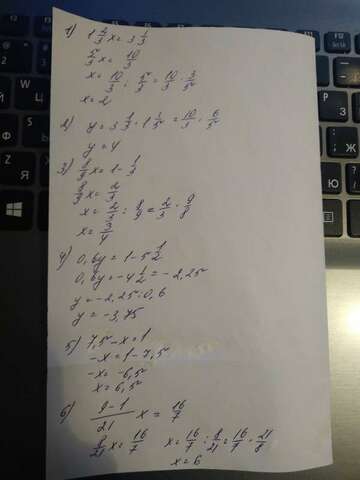 1) 1 2/3 x = 3 1/3
5/3 x = 10/3
x = 10/3 : 5/3 = 10/3 · 3/5
x = 2
2) y = 3 1/3 · 1 1/5 = 10/3 · 6/5
y = 4
3) 8/9 x = 1 - 1/3
8/9 x = 2/3
x = 2/3 : 8/9 = 2/3 · 9/8
x = 3/4
4) 0,6y = 1 - 5 1/2
0,6y = -4 1/2 = -2,25
y = -2,25 : 0,6
y = -3,75
5) 7,5 - x = 1
-x = 1 - 7,5
-x = -6,5
x = 6,5
6) 9-1/21 x = 16/7
8/21 x = 16/7 x = 16/7 : 8/21 = 16/7 · 21/8
x = 6